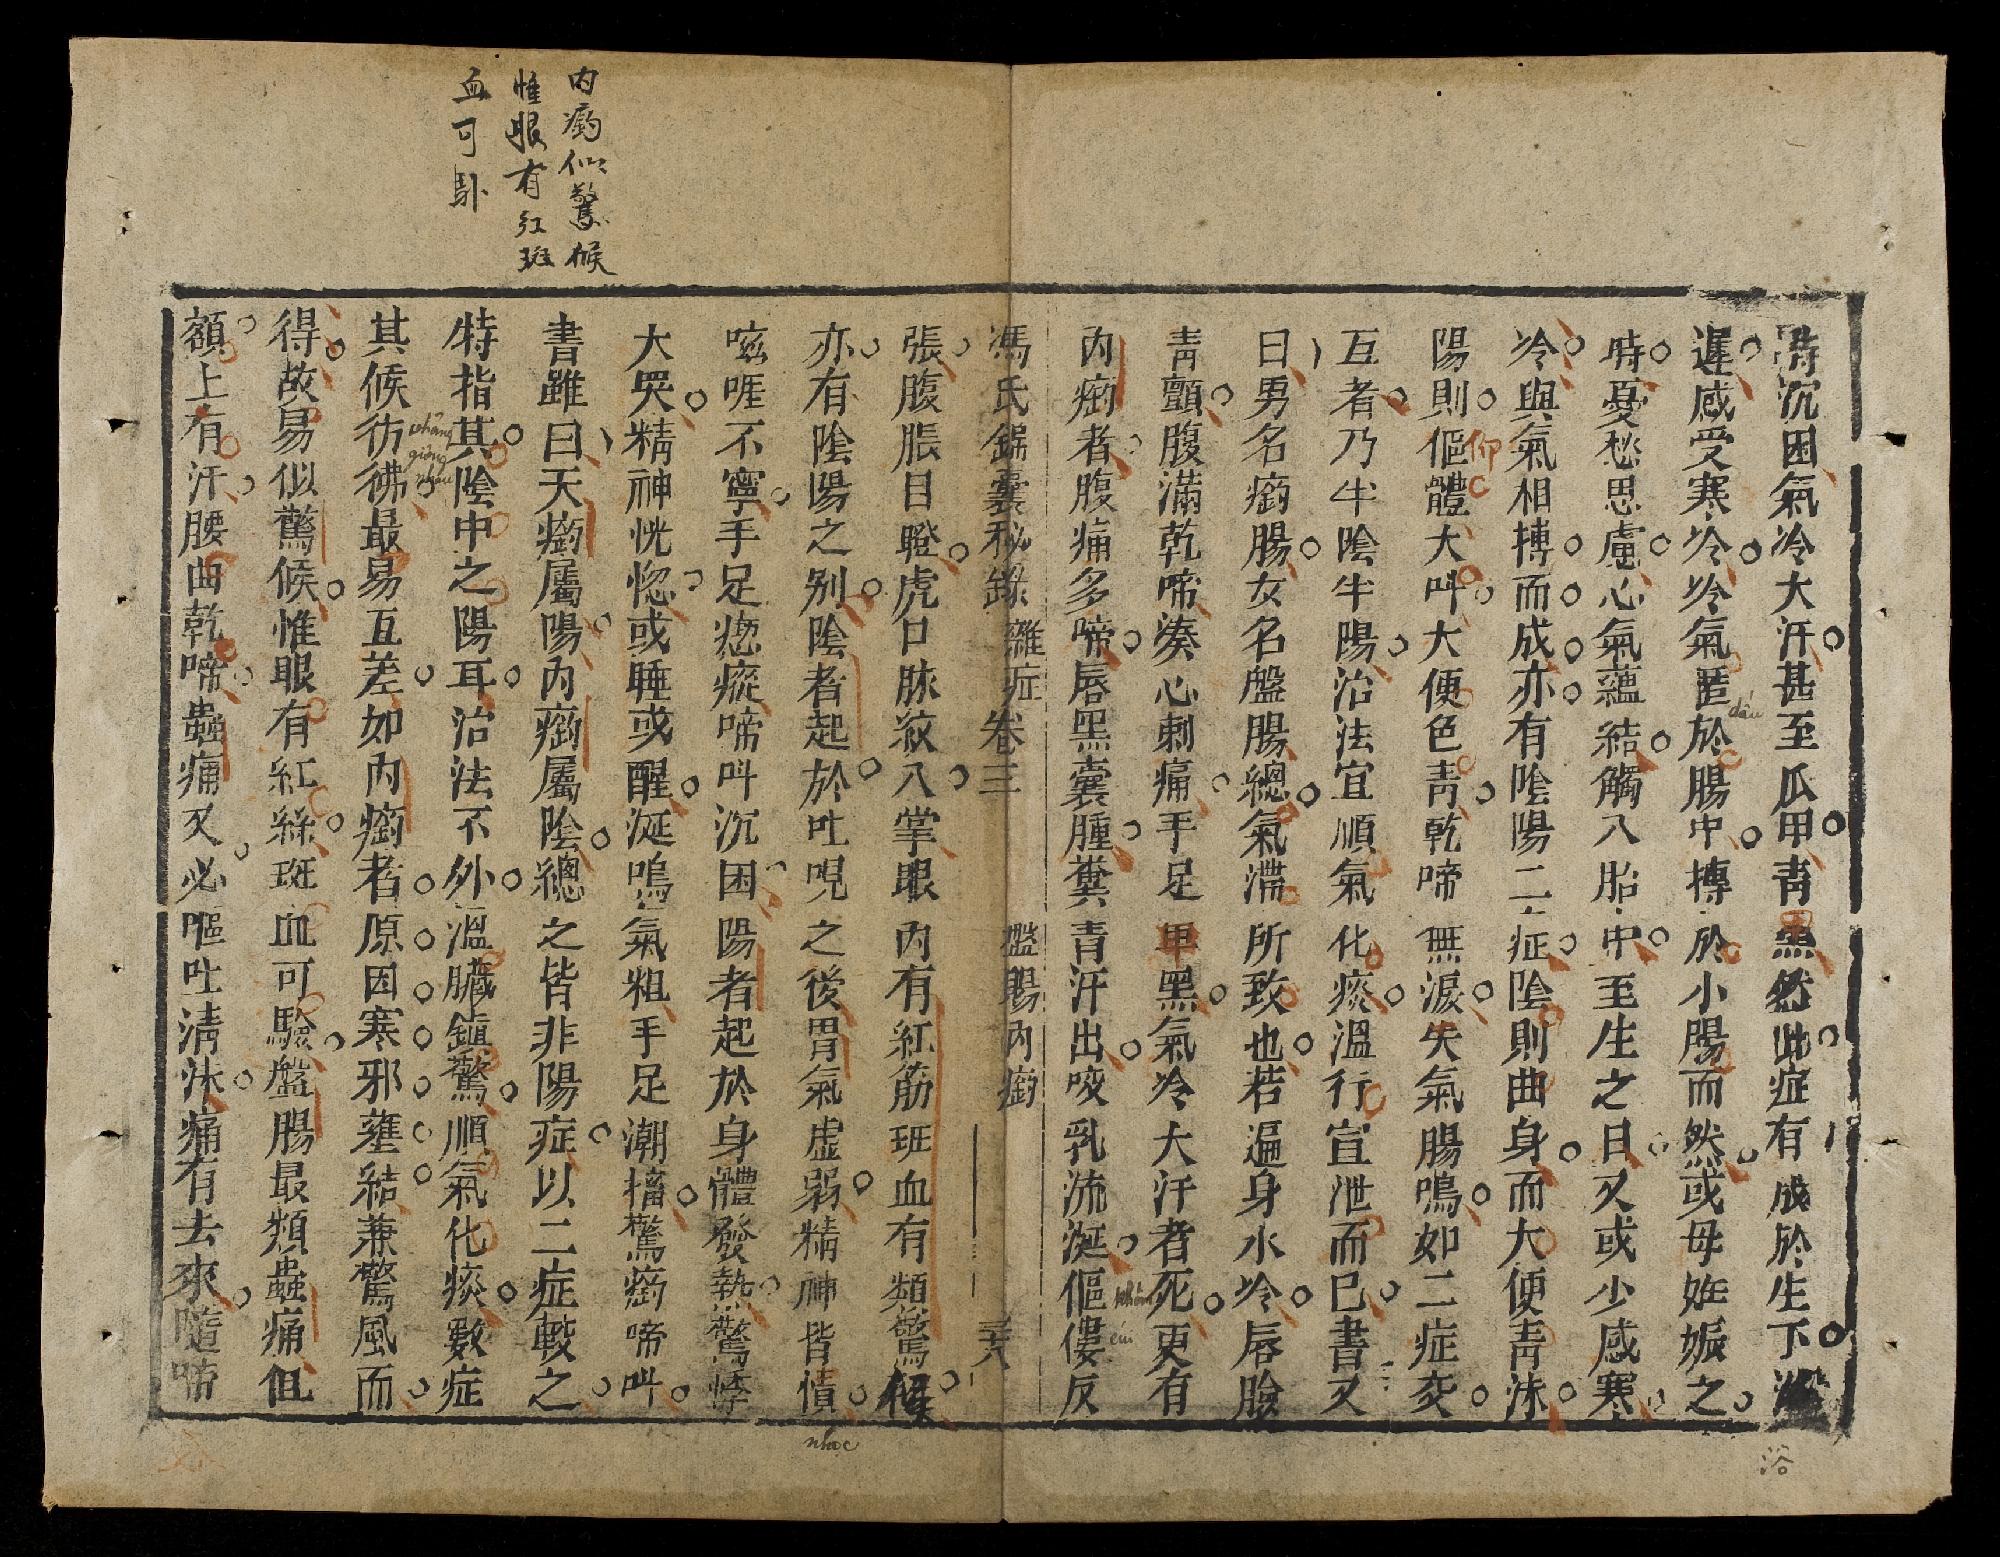 時沉困氣冷大汗甚至瓜甲青黑然此症有成於生下浴
遲感受寒冷冷氣匿於腸中摶於小腸而然或母姙娠之
時憂愁思慮心氣蘊結觸入胎中至生之日又或少感寒
冷與氣相摶而成亦有陰陽二症陰則曲身而大便青沫
陽則傴體大叫大便色青乾啼無淚失氣腸鳴如二症交
互者乃半陰半陽治法宜順氣化痰溫行宣泄而已書又
曰男名癇腸女名盤腸總氣滯所致也若遍身水冷唇臉
青顫腹滿乾啼湊心刺痛手足甲黑氣冷大汗者死更有
內癇者腹痛多啼唇黑囊腫糞青汗出咬乳流涎傴僂反
馮氏錦囊秘錄 雜症卷三 盤腸內癇 三六
張腹脹目瞪虎口脉紋入掌眼內有紅筋班血有類驚候
亦有陰陽之別陰者起於吐哯之後胃氣虛弱精神皆憒
嗞啀不寧手足瘛瘲啼叫沉困陽者起於身體發熱驚悸
大哭精神恍惚或睡或醒涎鳴氣粗手足潮搐驚癇啼叫
書雖曰天癇屬陽內癇屬陰總之皆非陽症以二症較之
特指其陰中之陽耳治法不外溫臟鎮驚順氣化痰數症
其候彷彿最易互差如內癇者原因寒邪壅結兼驚風而
得故易似驚候惟眼有紅絲斑血可驗盤腸最類蟲痛但
額上有汗腰曲乾啼蟲痛又必嘔吐清沫痛有去來隨啼
內癇似驚候
惟眼有紅斑
血可馸
仰
dấu
nhọc
浴